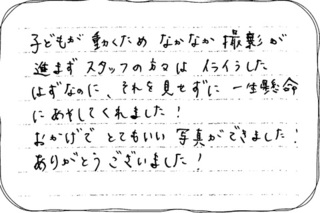 子どもが 動くため なかなか 撮影が
進まず スタッフの方々は イライラした
はずなのに、それを見せずに 一生懸命
にあそしてくれました！
おかげで とてもいい 写真ができました！
ありがとう ございました！